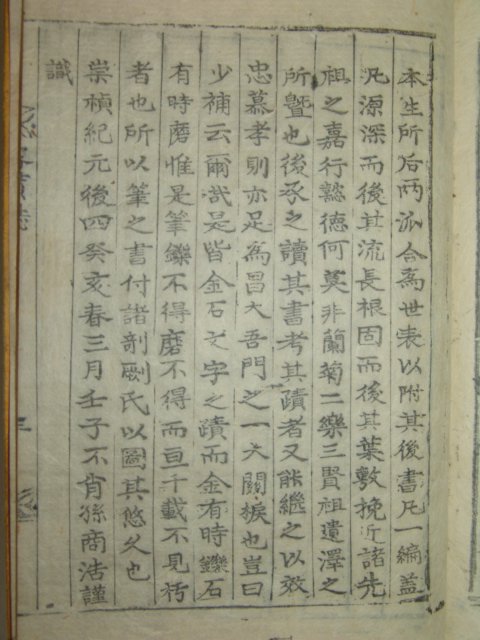 本生所后兩派合爲世表以附其後書凡一編盖
凡源深而後其流長根固而後其葉敷挽近諸先
祖之嘉行懿德何莫非蘭菊二樂三賢祖遺澤之
所曁也後承之讀其書考其蹟者又能繼之以效
忠慕孝則亦足爲昌大吾門之一大關棙也豈曰
少補云爾哉是皆金石文字之蹟而金有時鑠石
有時磨惟是筆鑠不得磨不得而亘千載不見朽
者也所以筆之書付諸剞劂氏以圖其悠久也
崇楨紀元後四癸亥春三月壬子不肖孫商浩謹
識